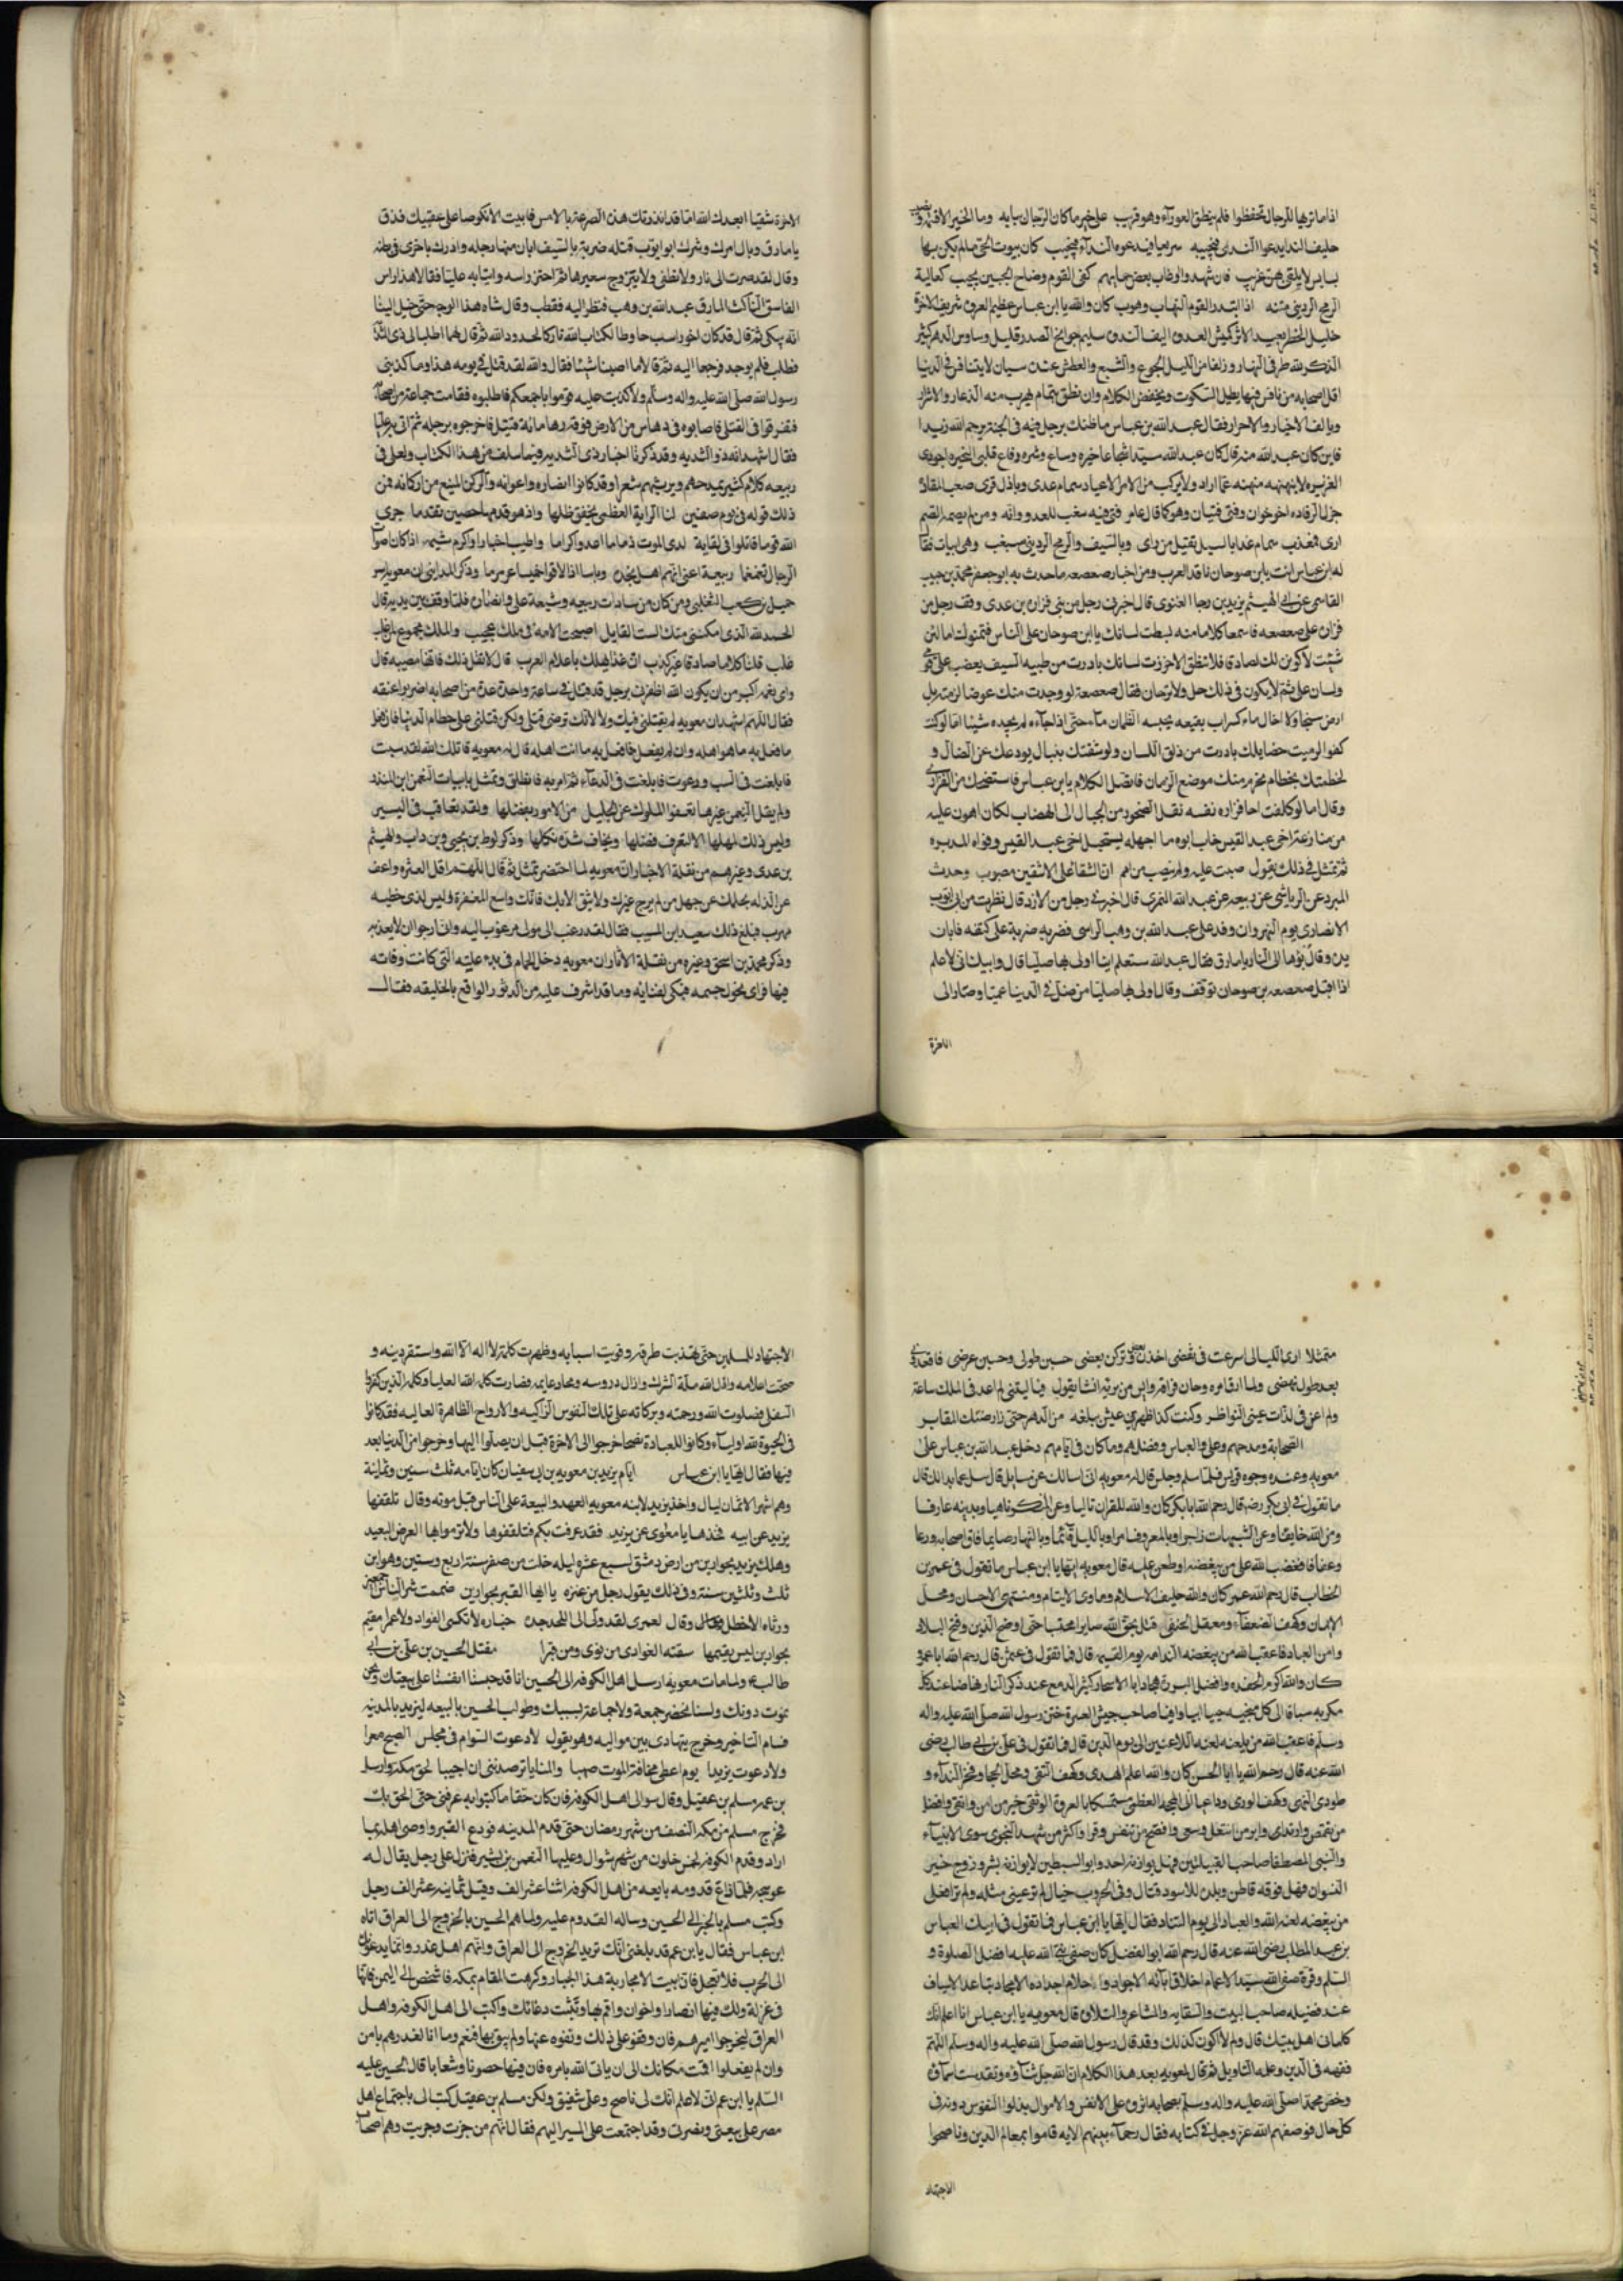 اذا ما تراها الرجال تحفظوا فلم ينطق العوراء وهو قريب على خير ما كان الرجال نباته وما الخير الا قسمة ونصيب
حليف الندا يدعوا الندى فيجيبه سريعا فيدعوه الندآء فيجيب كان بيوت الحى ما لم يكن بها
بسابس لا يلقى بهن عريب
الرمح الردينى متنه اذا ابتدر القوم النهاب وهوب كان والله يا ابن عباس عظيم المروة شريف الاخوة
جليل الخطر بعيد الاثر كميش العدوة اليف الندوة سليم جوانح الصدر قليل وساوس الدهر كثير
الذكر لله طرفى النهار وزلفا من الليل الجوع والشبع والعطش عنده سيان لا يتنافس فى الدنيا
اقل اصحابه من نافس فيها يطيل السكوت ويحفظ الكلام وان نطق نطق بمقام يهرب منه الذعار والاشرار
ويالف الاخيار والاحرار فقال عبد الله بن عباس ما ظنك برجل فيه فى الجنة يرحم الله زيدا
فاين كان عبد الله منه قال كان عبد الله سيدا شجاعا خيره وساع وشره دفاع قلبى النحيزه احوذى
الغريزه لا ينهنهه منهنه عما اراد ولا يركب من الامر الا عياد سمام عدى وباذل قرى صعب المقادة
جزل الرفاده اخو اخوان وفتى فتيان وهو كما قال عامر
له ابن عباس انت يا بن صوحان ناقد العرب ومن اخبار صعصعه ما حدث به ابو جعفر محمد بن حبيب
القاسى عن ابى الهيثم يزيد بن رجا الغنوى قال اخبرنى رجل من بنى فزارة بن عدى وقف رجل من
فزارة على صعصعه فاسمعه كلاما منه بسطت لسانك يا ابن صوحان على الناس فتهيبوك اما لئن
شئت لاكونن لك لصادقا فلا تنطق الا جززت لسانك بادرت من ظبيه السيف
ولسان على ثم لا يكون فى ذلك حل ولا ترحال فقال صعصعه لو وجدت منك غرضا لرميته بل
ارى شبحا ولا اخال ماء كسراب بقيعه يحسبه الظمآن مآء حتى اذا جآءه لم يجده شيئا اما لو كنت
كفوا لرميت حصايلك باذرب من ذلق اللسان ولرشقتك بنبال يردعك عن النضال و
لخطمتك بخطام يخرم منك موضع الزمام فاتصل الكلام بابن عباس فاستضحك من الفزارى
وقال اما لو كلفت اخا فزاره نفسه نقل الصخور من الجبال الى الهضاب لكان اهون عليه
من منازعة اخى عبد القيس خاب ابوه ما اجهله يستجهل اخى عبد القيس وقواه المريره
ثم تمثل فى ذلك بقول صبت عليه ولم تنصب من امم ان الشقا على الاشقين مصبوب وحدث
المبرد عن الرياشى عن ربيعه عن عبد الله النمرى قال اخبرنى رجل من الازد قال نظرت من ابى ايوب
الانصارى يوم النهروان وقد علا عبد الله بن وهب الراسى فضربه ضربة على كتفه فابان
يده وقال بؤ بها الى النار يا مارق فقال عبد الله ستعلم اينا اولى بها صليا قال وابيك انى لاعلم
اذا اقبل صعصعه بن صوحان فوقف وقال اولى بها صليا من ضل فى الدنيا عميا وصار الى
الاخرة
الاخرة شقيا ابعدك الله اما قد انذرتك هذه الصرعة بالامس فابيت الا نكوصا على عقبيك فذق
يا مارق وبال امرك وشرك ابو ايوب قتله ضربه بالسيف ابان بها رجله وادركه باخرى فى بطنه
وقال لقد صرت الى نار لا تطفى ولا يبوخ سعيرها ثم احتز راسه واتيا به عليا فقالا هذا راس
الفاسق الناكث المارق عبد الله بن وهب فنظر اليه فقطب وقال شاه هذا الوجه حتى خيل الينا
انه يبكى ثم قال قد كان اخو راسب حافظا لكتاب الله تاركا لحدود الله ثم قال لهما اطلبا لى ذى الثدية
فطلب فلم يوجد فرجعا اليه ثم قالا ما اصبنا شيئا فقال والله لقد قتل فى يومه هذا وما كذبنى
رسول الله صلى الله عليه واله وسلم ولا كذبت عليه قوموا باجمعكم فاطلبوه فقامت جماعة من اصحابه
فتفرقوا فى القتلى فاصابوه فى دهاس من الارض فوقه زهاء مائة قتيل فاخرجوه برجله ثم اتى به عليا
فقال اشهد انه ذو الثديه وقد ذكرنا اخبار ذى الثديه فيما سلف من هذا الكتاب ولعلى فى
ربيعه كلام كثير يمدحهم ويرثيهم شعرا وقد كانوا انصاره واعوانه والركن المنيع من اركانه فمن
ذلك قوله فى يوم صفين لنا الراية العظمى يخفق ظلها واذ هو قدمها حصين تقدما جزى
الله قوما قاتلوا فى لقايه لدى الموت قدما ما اعز واكراما واطيب اخبارا واكرم شيمه اذا كان اصوات
الرجال تغمغما ربيعة اعنى انهم اهل نجدة وباسا اذا لاقوا خميسا عرمرما وذكر المداينى ان معويه اسر
جميل بن كعب الثعلبى ومن كان من سادات ربيعه وشيعة على وانصاره فلما وقف بين يديه قال
الحمد لله الذى امكننى منك الست القايل اصبحت الامه فى ملك عجيب والملك مجموع لمن غلب
قلت كلاما صادقا غير كذب ان غدا يهلك باعلام العرب قال لا تفعل ذلك فانها مصيبه قال
واى نعمه اكبر من ان يكون الله اظفرنى برجل قد قتل فى ساعة واحدة عدة من اصحابه اضربوا عنقه
فقال اللهم اشهد ان معويه لم يقتلنى فيك ولا لانك ترضى قتلى ولكن قتلنى على حطام الدنيا فان فعل
فافعل به ما هو اهله وان لم يفعل فافعل به ما انت اهله قال له معويه قاتلك الله لقد سببت
فابلغت فى السب ودعوت فابلغت فى الدعآء ثم امر به فاطلق وتمثل بابيات النعمن ابن المنذر
ولم يقل النعمن غيرها تعفوا الملوك عن الجليل من الامور بفضلها ولقد تعاقب فى اليسير
وليس ذلك لجهلها الا ليعرف فضلها ويخاف شدة نكلها وذكر لوط بن يحيى وبن داب والهيثم
بن عدى وغيرهم من نقلة الاخبار ان معويه لما احتضر تمثل ثم قال اللهم اقل العثره واعف
عن الزله بحلمك عن جهل من لم يرج غيرك ولا يثق الا بك فانك واسع المغفرة وليس لذى خطيه
مهرب فبلغ ذلك سعيد ابن المسيب فقال لقد رغب الى مولى مرغوب اليه وانى ارجوا ان لا يعذبه
وذكر محمد بن اسحق وغيره من نقلة الاثار ان معويه دخل الحمام فى بدء علته التى كانت وفاته
فيها فراى نحول جسمه فبكى لفنايه وما قد اشرف عليه من الدثور الواقع بالخليقه فقال
متمثلا ارى الليالى اسرعت فى نقضى اخذن بعضى وتركن بعضى حنين طولى وحنين عرضى فاقعدنى
بعد طول نهضى ولما ازف امره وحان فراقه وايس من برئه انشا يقول فيا ليتنى لم اعد فى الملك ساعة
ولم اعن فى لذات عيشى النواظر وكنت كذى طمرين عيش ببلغه من الدهر حتى زار ضنك المقابر
الصحابة ومدحهم وعلى والعباس وفضلهم وما كان فى ايامهم دخل عبد الله بن عباس على
معويه وعنده وجوه قريش فلما سلم وجلس قال له معويه انى اسالك عن سايل قال سل عما بدا لك قال
ما تقول فى ابى بكر رضه قال رحم الله ابا بكر كان والله للقران تاليا وعن المنكر ناهيا وبدينه عارفا
ومن الله خايفا وعن الشبهات زاجرا وبالمعروف امرا وبالليل قائما وبالنهار صايما فاق اصحابه ورعا
وعفافا فغضب الله على من يبغضه او طعن عليه قال معويه ايها يا ابن عباس ما تقول فى عمر بن
الخطاب قال رحم الله عمر كان والله حليف الاسلام وماوى الايتام ومنتهى الاحسان ومحل
الايمان وكهف الضعفآء ومعقل الحنفى قام بحق الله صابرا محتسبا حتى اوضح الدين وفتح البلاد
وامن العباد فاعقب الله من يبغضه الندامه يوم القيمه قال فما تقول فى عثمن قال رحم الله ابا عمرو
كان والله اكرم الحفده وافضل البررة هجادا بالاسحار كثير الدمع عند ذكر النار نهاضا عند كل
مكرمه سباقا الى كل منجيه حييا ابيا وافيا صاحب جيش العسرة ختن رسول الله صلى الله عليه واله
وسلم فاعقب الله من يلعنه لعنه اللاعنين الى يوم الدين قال فما تقول فى على بن ابى طالب رضى
الله عنه قال رحم الله ابا الحسن كان والله علم الهدى وكهف التقى ومحل الحجا وبحر الندآء و
طود النهى وكهف الورى وداعيا الى المحجه العظمى مستمسكا بالعروة الوثقى خير من امن واتقى وافضل
من تقمص وارتدى وابر من انتعل وسعى وافصح من تنفس وقرا واكثر من شهد النجوى سوى الانبيآء
والنبى المصطفى صاحب القبلتين فهل يوازنه احد وابو السبطين لا يوازنه بشر وزوج خير
النسوان فهل فوقه قاطن وبلده للاسود قتال وفى الحروب ختال لم تر عينى مثله ولم تر افضل
من يبغضه لعنة الله والعباد الى يوم التناد فقال ايها يا ابن عباس فما تقول فى ابيك العباس
بن عبد المطلب رضى الله عنه قال رحم الله ابو الفضل كان صنو نبى الله عليه افضل الصلوة و
السلم وقرة عين صفى الله سيد الاعمام
عند فضيله صاحب البيت والسقايه والمشاعر والتلاوة قال معويه يا ابن عباس انا اعلم انك
كلمانى اهل بيتك قال ولم لا اكون كذلك وقد قال رسول الله صلى الله عليه واله وسلم اللهم
فقهه فى الدين وعلمه التاويل ثم قال لمعويه بعد هذا الكلام ان الله جل ثنآؤه وتقدست اسمآؤه
وخص محمدا صلى الله عليه واله وسلم بصحابه اثروه على الانفس والاموال بذلوا النفوس دونه فى
كل حال فوصفهم الله عز وجل فى كتابه فقال رحمآء بينهم الايه قاموا بمعالم الدين وناصحوا
الاجتهاد
الاجتهاد للمسلمين حتى تهذبت طرقه وقويت اسبابه وظهرت كلمة لا اله الا الله واستقر دينه و
صحت اعلامه واذل الله ملة الشرك وازال دروسه ومحا دعايمه فصارت كلمة الله العليا وكلمة الذين كفروا
السفلى فصلوت الله ورحمته وبركاته على تلك النفوس الزاكيه والارواح الطاهرة العاليه فقد كانوا
فى الحيوة لله اوليآء وكانوا للعباد نصحا خرجوا الى الاخرة قبل ان يصلوا اليها وخرجوا من الدنيا بعد
فيها فقال ايها يا ابن عباس ايام يزيد بن معويه بن ابى سفيان كان ايامه ثلث سنين وثمانية
وهم اشهر الا ثمان ليال واخذ يزيد لابنه معويه العهد والبيعة على الناس قبل موته وقال تلقفها
يزيد عن ابيه فخذها يا معوى عن يزيد فقد عرفت بكم فتلقفوها ولا ترموا بها الغرض البعيد
وهلك يزيد بحوارين من ارض دمشق لسبع عشره ليله خلت من صفر سنة اربع وستين وهو ابن
ثلث وثلثين سنة وفى ذلك يقول رجل من عنزه يا ايها القبر بحوارين ضممت شر الناس اجمعين
ورثاه الاخطل وقال لعمرى لقد دلى الى اللحد
بحوارين ليس يقيمها سقته الغوادى من ثوى ومن قبرا مقتل الحسين بن على بن ابى
طالب ولما مات معويه ارسل اهل الكوفه الى الحسين انا قد حبسنا انفسنا على بيعتك ونحن
نموت دونك ولسنا نحضر جمعة ولا جماعة لسببك وطولب الحسين بالبيعه ليزيد بالمدينه
فسام التاخير وخرج يتهادى بين مواليه وهو يقول لا ذعرت السوام فى مجلس الصبح مغيرا
ولا دعيت يزيدا يوم اعطى مخافة الموت ضيما والمنايا ترصدننى ان احيدا لحق مكه وارسل
بن عمه مسلم بن عقيل وقال سر الى اهل الكوفه فان كان حقا ما كتبوا به عرفنى حتى الحق بك
فخرج مسلم من مكه النصف من شهر رمضان حتى قدم المدينه فودع القبر واوصى اهله بما
اراد وقدم الكوفه لخمس خلون من شهر شوال وعليها النعمن بن بشير فنزل على رجل يقال له
عوسجه فلما ذاع قدومه بايعه من اهل الكوفه اثنا عشر الف وقيل ثمانيه عشر الف رجل
وكتب مسلم بالخبر الى الحسين وساله القدوم عليه ولما هم الحسين بالخروج الى العراق اتاه
ابن عباس فقال يا بن عم قد بلغنى انك تريد الخروج الى العراق وانهم اهل غدر وانما يدعونك
الى الحرب فلا تعجل فان ابيت الا محاربة هذا الجبار وكرهت المقام بمكه فاشخص الى اليمن فانها
فى عزلة ولك فيها انصار واخوان واقم بها وثبت دعاتك واكتب الى اهل الكوفه واهل
العراق ليخرجوا اميرهم فان وقفو على ذلك ونفوه عنها ولم يبق بها فنعم وما انا لغدرهم بامن
وان لم يفعلوا اقمت مكانك الى ان ياتى الله بامره فان فيها حصونا وشعابا قال الحسين عليه
السلم يا ابن عم انى لاعلم انك لى ناصح وعلى شفيق ولكن مسلم بن عقيل كتب الى باجتماع اهل
مصر على بيعتى ونصرتى وقد اجتمعت على المسير اليهم فقال انهم من جربت وجربت وهم اصحاب